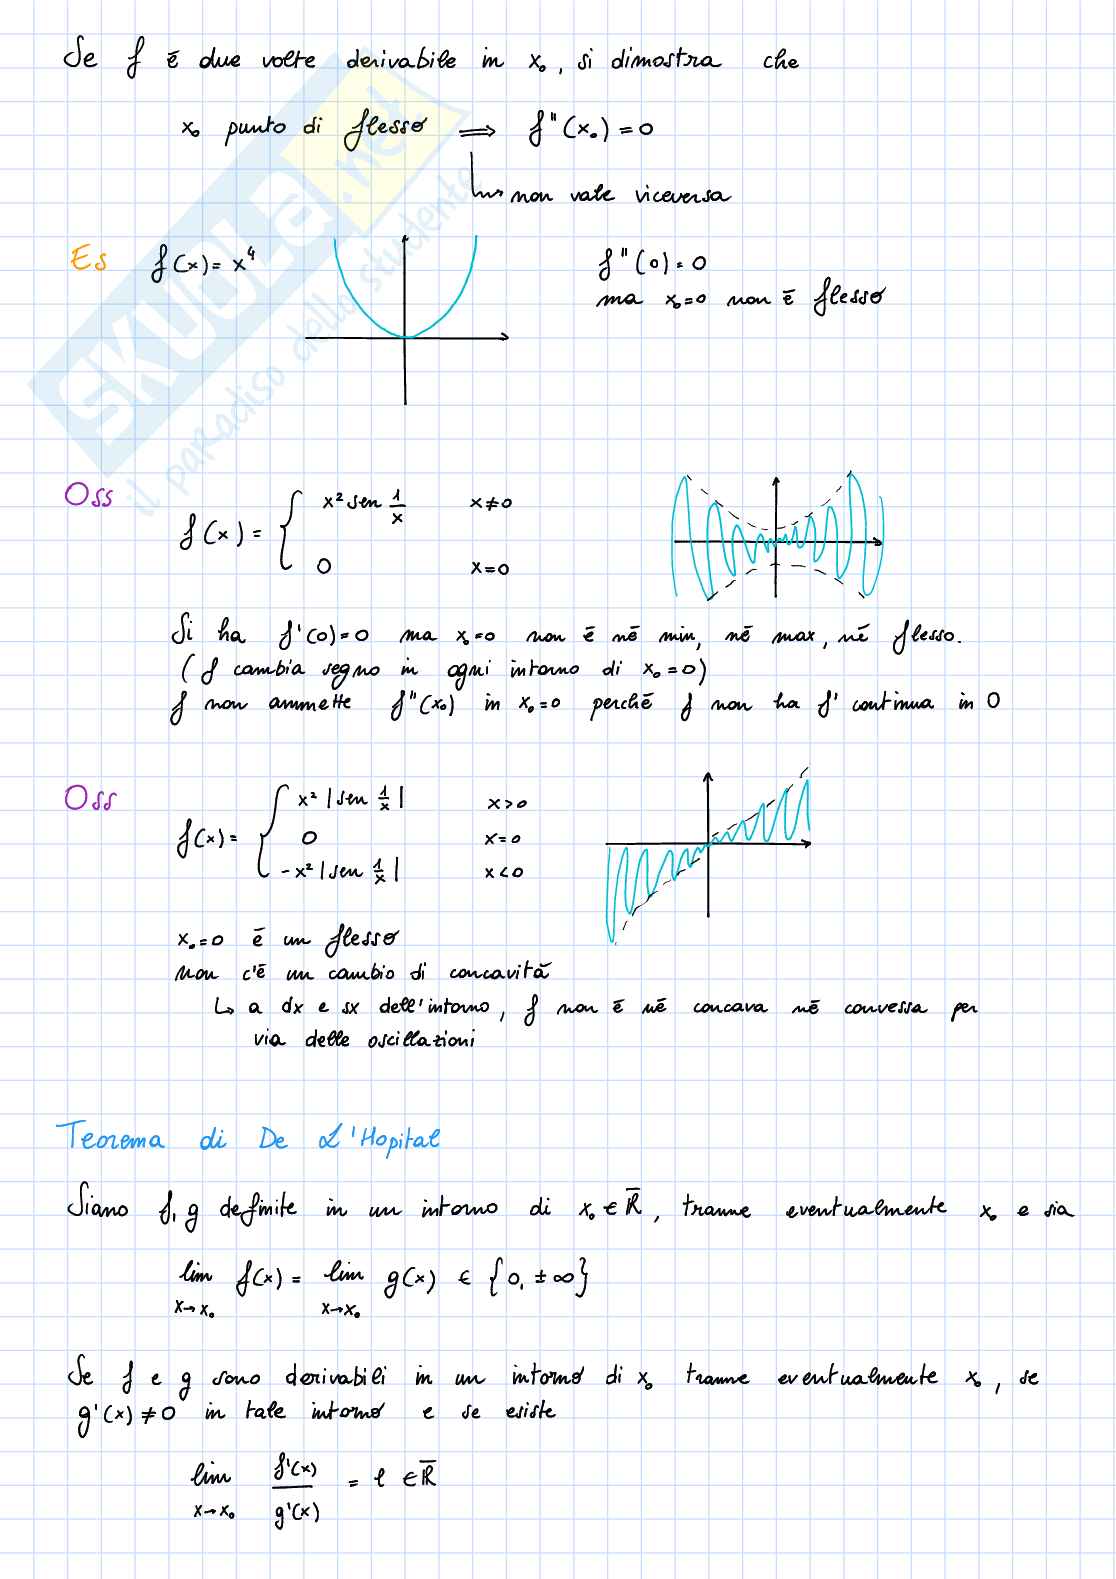 Se f é due volte derivabile in x₀, si dimostra che
x₀ punto di flesso ⟹ f"(x₀) = 0
↳ non vale viceversa
Es f(x) = x⁴
f"(0) = 0
ma x₀=0 non é flesso
Oss
f(x) = { x² sen 1/x x≠0
0 x=0
Si ha f'(0)=0 ma x₀=0 non é né min, né max, né flesso.
(f cambia segno in ogni intorno di x₀=0)
f non ammette f"(x₀) in x₀=0 perché f non ha f' continua in 0
Oss
f(x) = { x² |sen 1/x| x>0
0 x=0
-x² |sen 1/x| x<0
x₀=0 é un flesso
Non c'é un cambio di concavitá
↳ a dx e sx dell'intorno, f non é né concava né convessa per
via delle oscillazioni
Teorema di De L'Hopital
Siano f, g definite in un intorno di x₀ ∈ R̅, tranne eventualmente x₀ e sia
lim f(x) = lim g(x) ∈ {0, ±∞}
x→x₀ x→x₀
Se f e g sono derivabili in un intorno di x₀ tranne eventualmente x₀, se
g'(x) ≠ 0 in tale intorno e se esiste
lim f'(x)/g'(x) = l ∈ R̅
x→x₀
SKUOLA.net
il paradiso dello studente